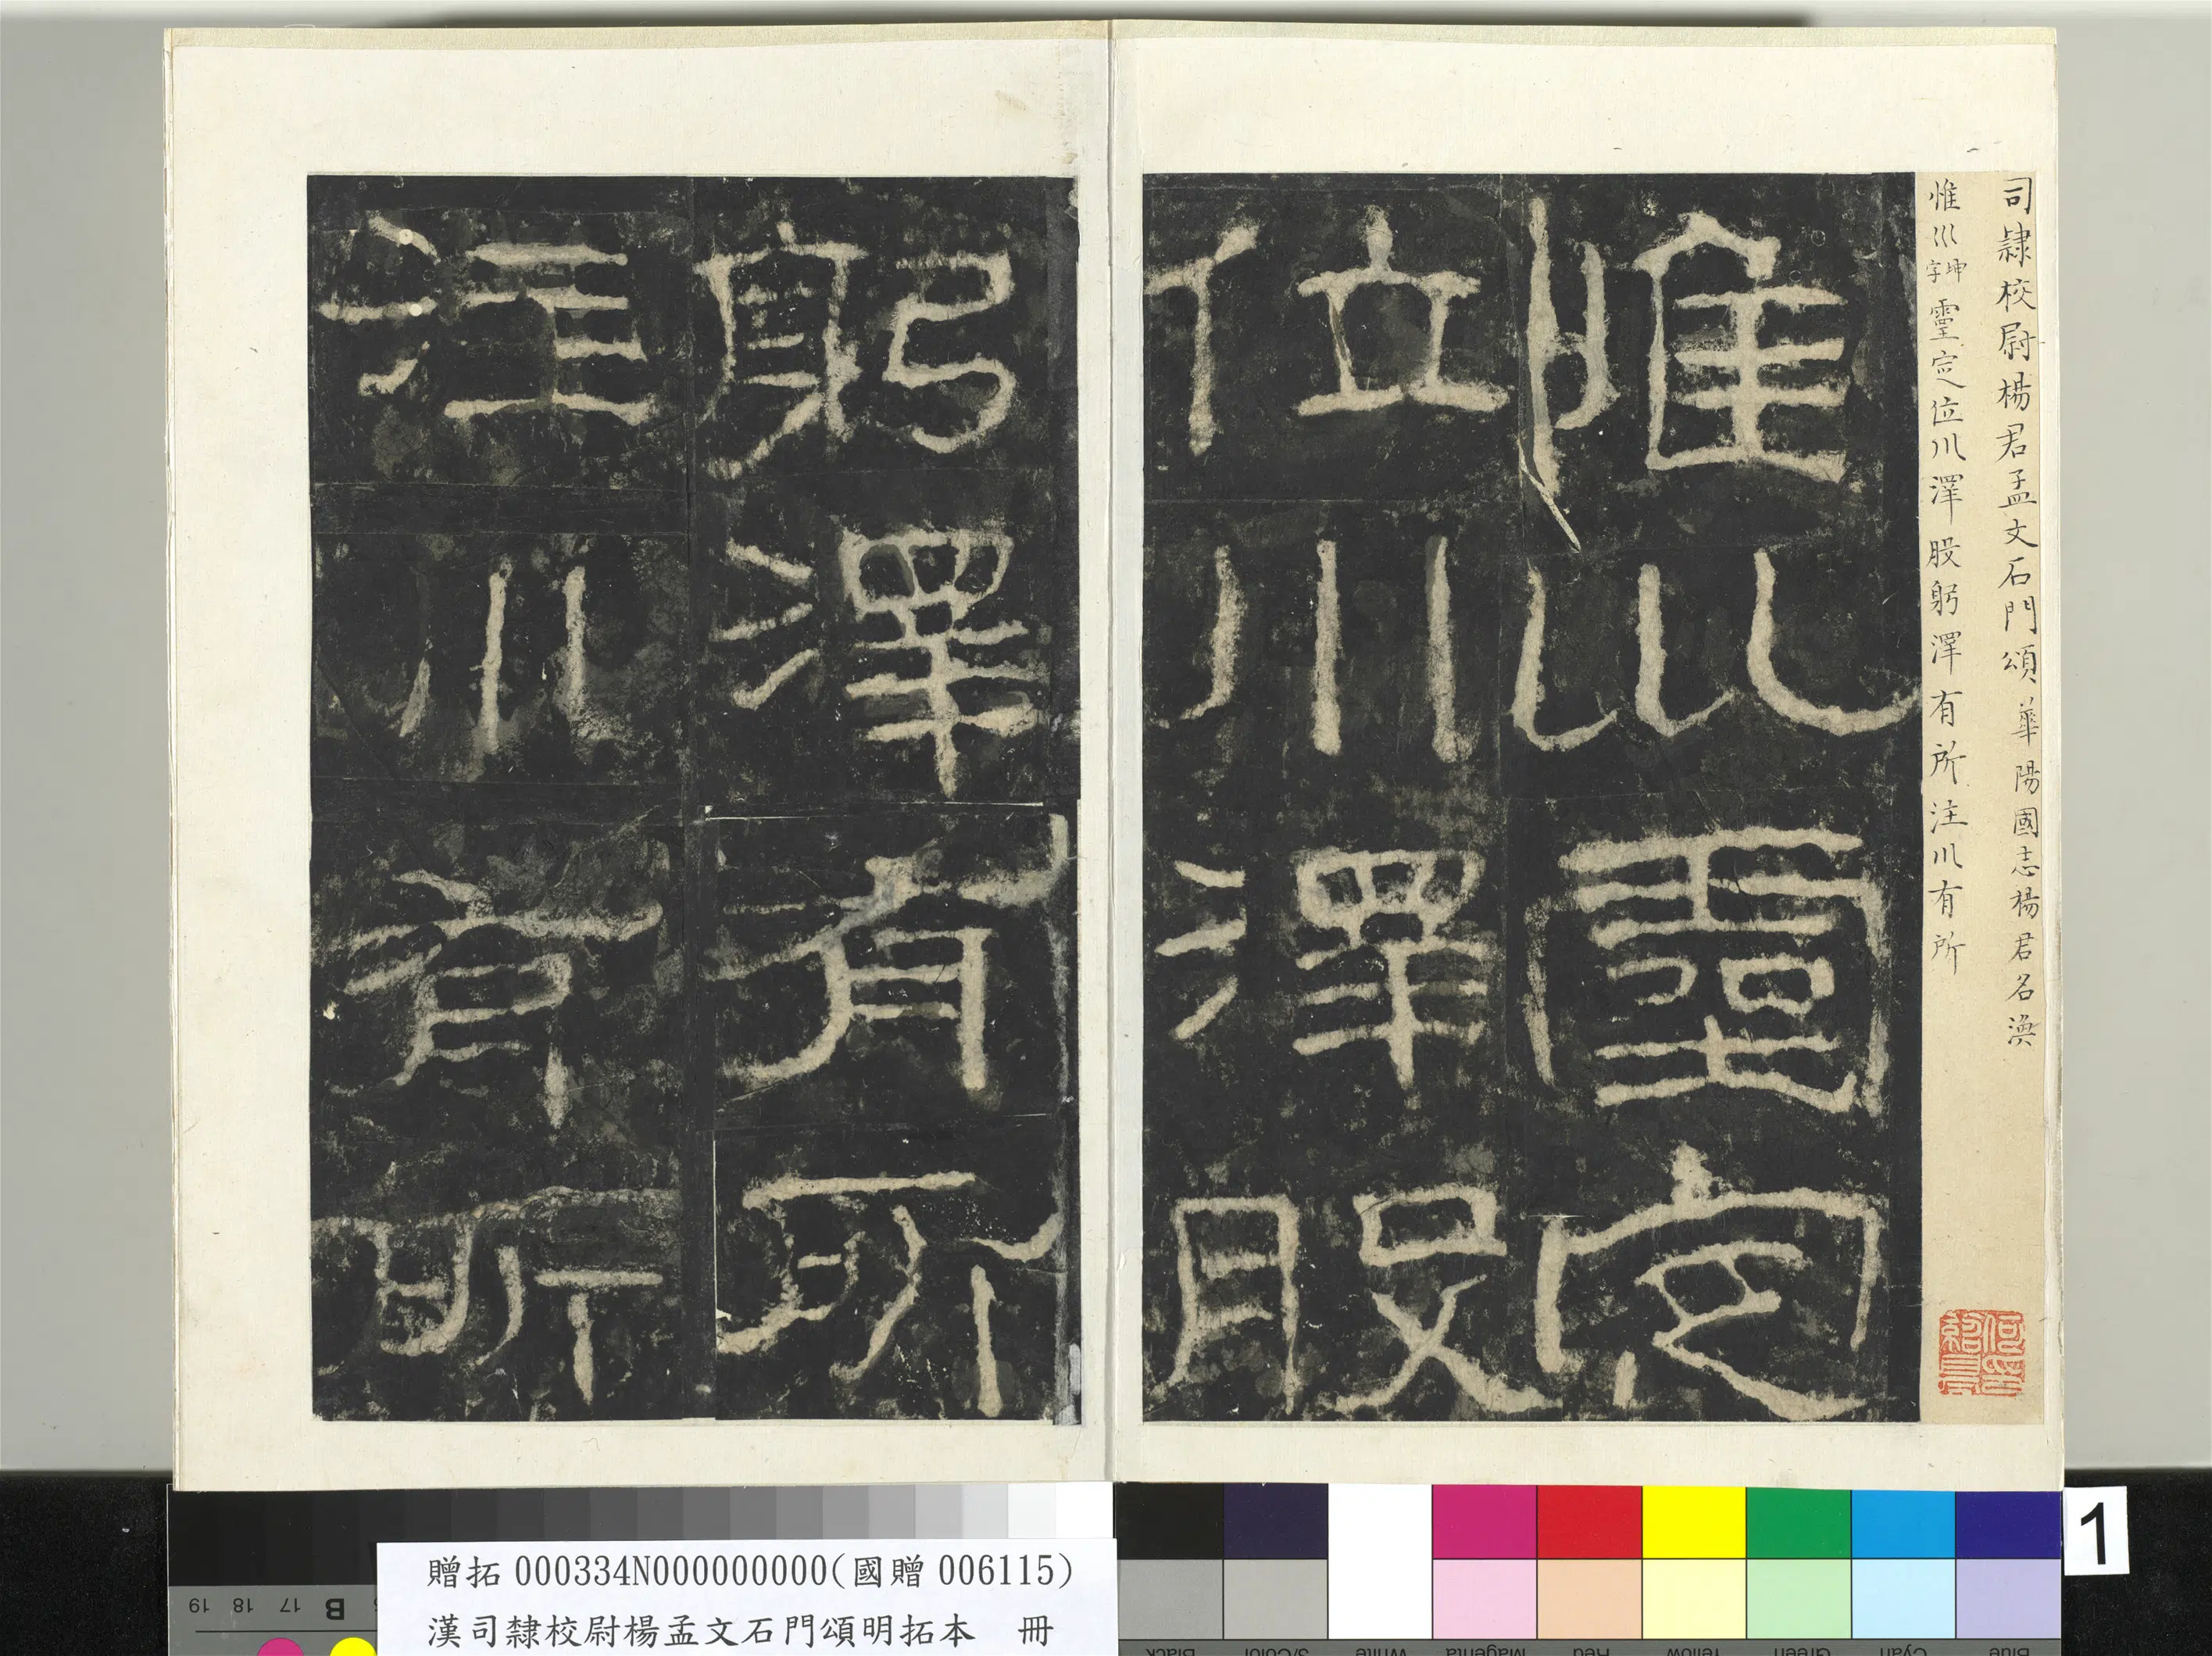 司隸校尉楊君孟文石門頌 華陽國志楊君名渙
惟巛坤字靈定位川澤股躬澤有所注川有所
惟巛靈定
位川澤股
躬澤有所
注川有所
1
贈拓 000334N000000000(國贈 006115)
漢司隸校尉楊孟文石門頌明拓本 冊
19 18 17 B
Black 3/Color White Magenta Red Yellow Green Cyan Blue